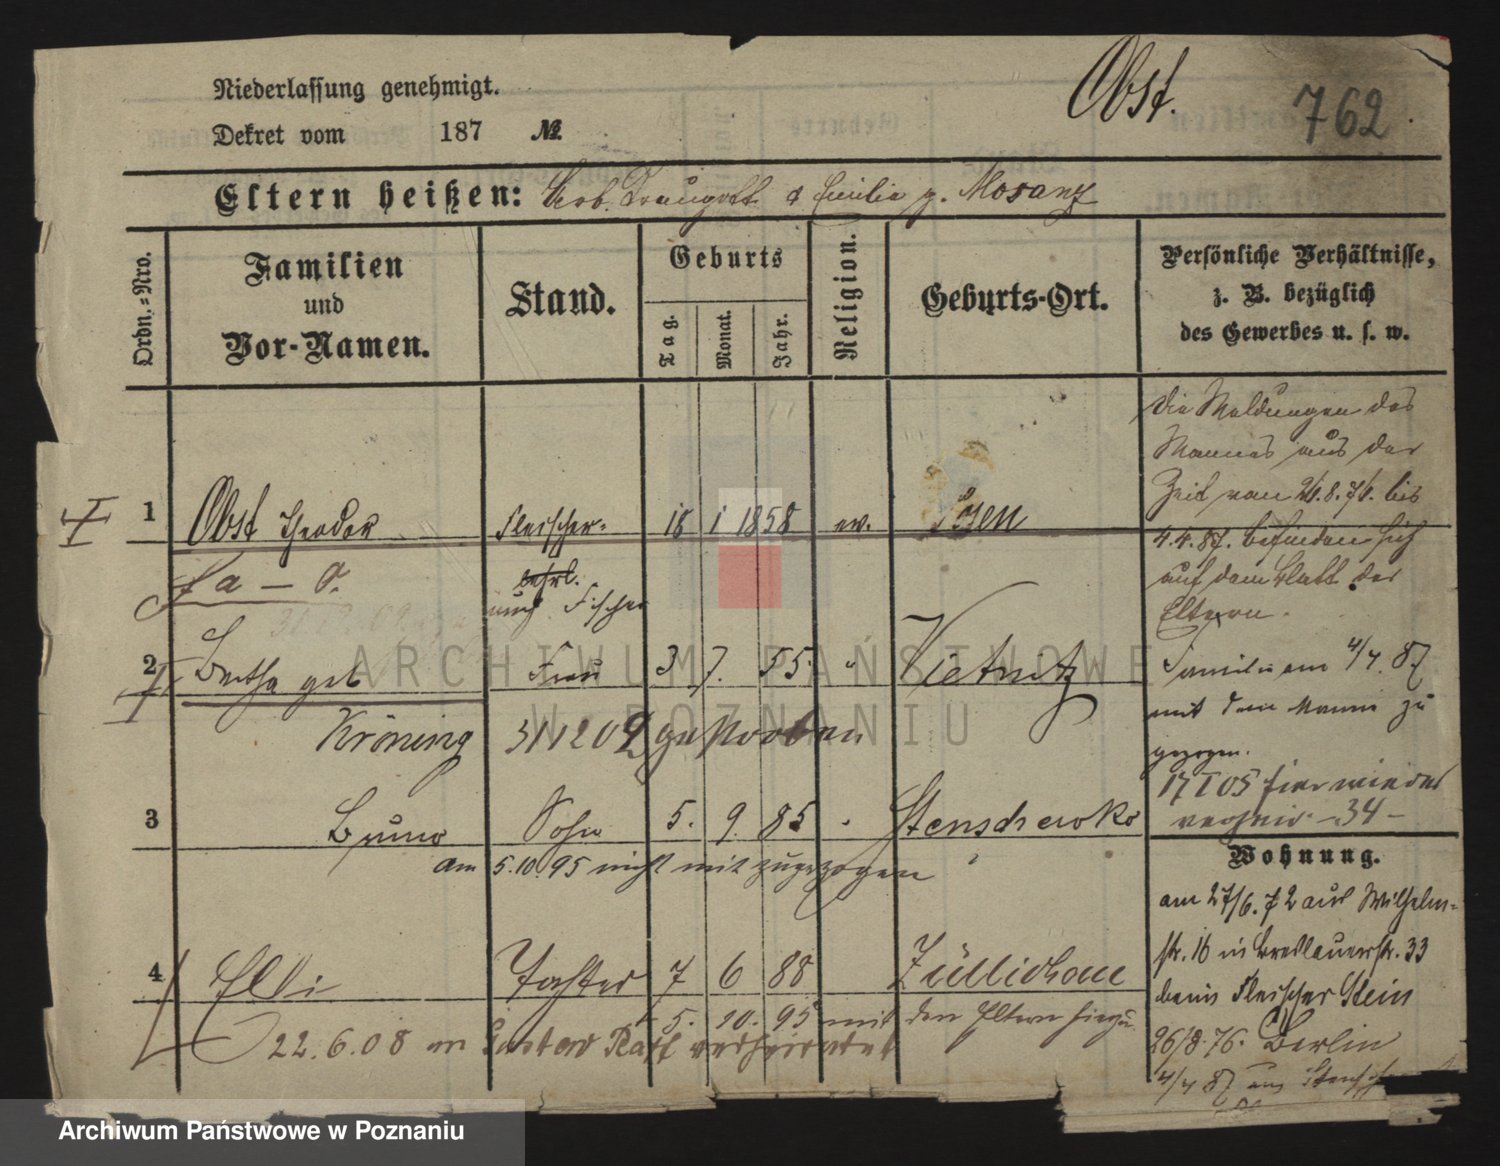 Niederlassung genehmigt.
Dekret vom 187 №
Obst.
762
Eltern heißen: Traugott & Emilie g. Mosanz
Ordn.-Nro.
Familien und Vor-Namen.
Stand.
Geburts
Tag.
Monat.
Jahr.
Religion.
Geburts-Ort.
Persönliche Verhältnisse,
z. B. bezüglich
des Gewerbes u. s. w.
1 Obst Theodor Fleischer- 18 1 1858 ev. Posen
lehrl.
Fischer
2 Bertha geb Frau 3 7. 55. Vietnitz
Kröning 31 12 09 gestorben
3 Bruno Sohn 5. 9. 85 Stenschewko
am 5.10.95 nicht mit zugezogen
4 Elli Tochter 7 6 88 Züllichau
5. 10. 95 mit den Eltern hinzu
22.6.08 an Gustav verheiratet
Die Meldungen des
Mannes aus der
Zeit vom 26.8.76. bis
4.4.87. befinden sich
auf dem Blatt der
Eltern.
Familie am 4/4. 87
mit dem Manne zu
gezogen.
17 I 05 hier wieder
- 34 -
Wohnung.
am 27/6.72 aus Wilhelm-
str. 16 in Breslauerstr. 33
beim Fleischer Stein
26/8.76. Berlin
4/4 87
ARCHIWUM PAŃSTWOWE
W POZNANIU
Archiwum Państwowe w Poznaniu